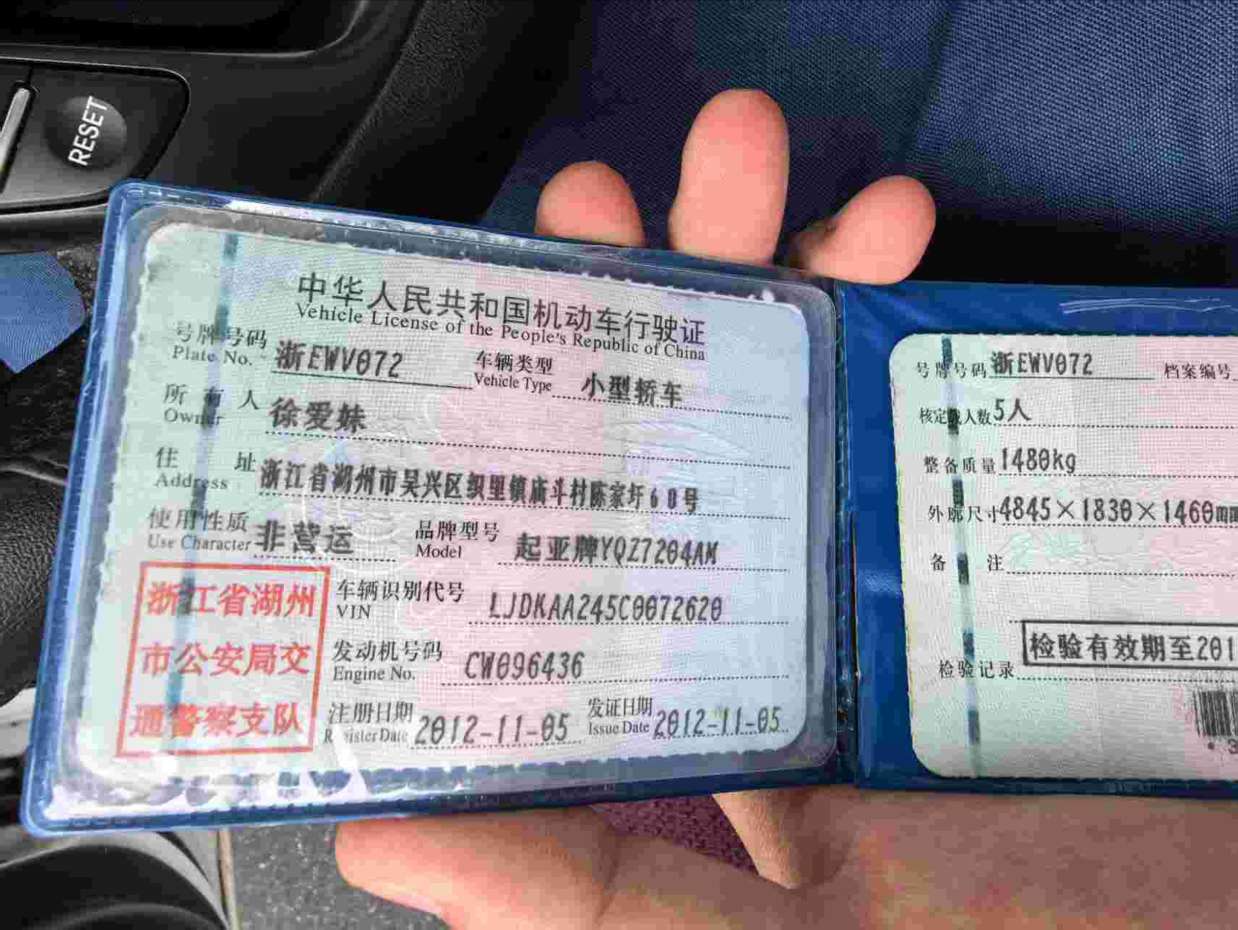 RESET
中华人民共和国机动车行驶证
Vehicle License of the People's Republic of China
号牌号码 浙EWV072 车辆类型 小型轿车
Plate No. Vehicle Type
所有人 徐爱妹
Owner
住址 浙江省湖州市吴兴区织里镇庙斗村陈家圩60号
Address
使用性质 非营运 品牌型号 起亚牌YQZ7204AM
Use Character Model
浙江省湖州
市公安局交
通警察支队
车辆识别代号 LJDKAA245C0072620
VIN
发动机号码 CW096436
Engine No.
注册日期 2012-11-05 发证日期 2012-11-05
Register Date Issue Date
号牌号码 浙EWV072 档案编号
核定载人数 5人
整备质量 1480kg
外廓尺寸 4845×1830×1460
备注
检验有效期至201
检验记录